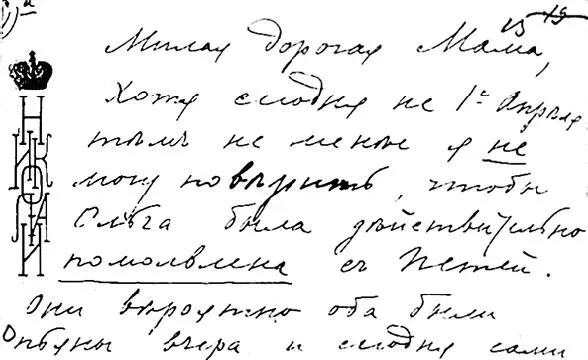 13 15
Милая дорогая Мама,
Хотя сегодня не 1ᵒᵉ Апреля
тѣмъ не менѣе я не
могу повѣрить, чтобы
Ольга была дѣйствительно
помолвлена съ Петей.
Они вѣроятно оба были
пьяны вчера и сегодня сами
НИКОЛАЙ